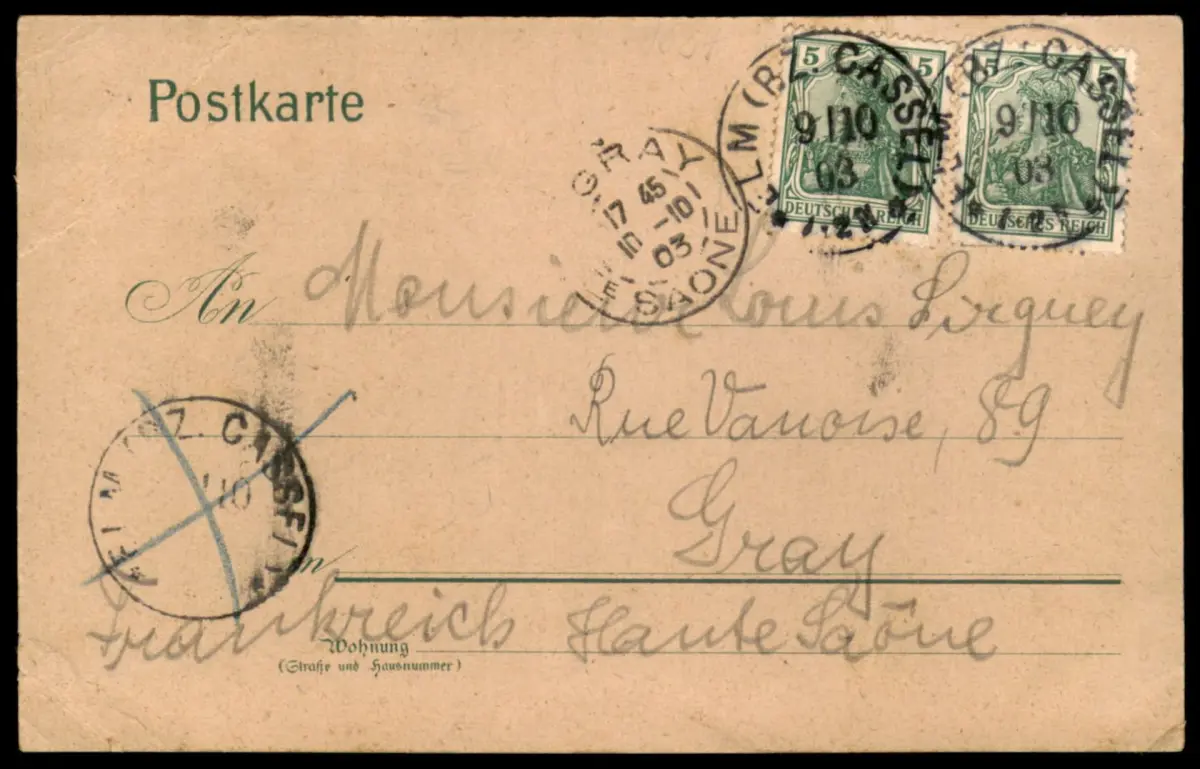 Postkarte
5 5
DEUTSCHES REICH
ELM (BZ. CASSEL)
9/10
03
* 7-8 N *
5 5
DEUTSCHES REICH
CASSEL)
9/10
03
GRAY
17 45
10 -10
03
HTE SAONE
An Monsieur Louis Sirguey
Rue Vanoise, 89
ELM (BZ. CASSEL)
/10
in Gray
Frankreich Haute Saône
Wohnung
(Straße und Hausnummer)